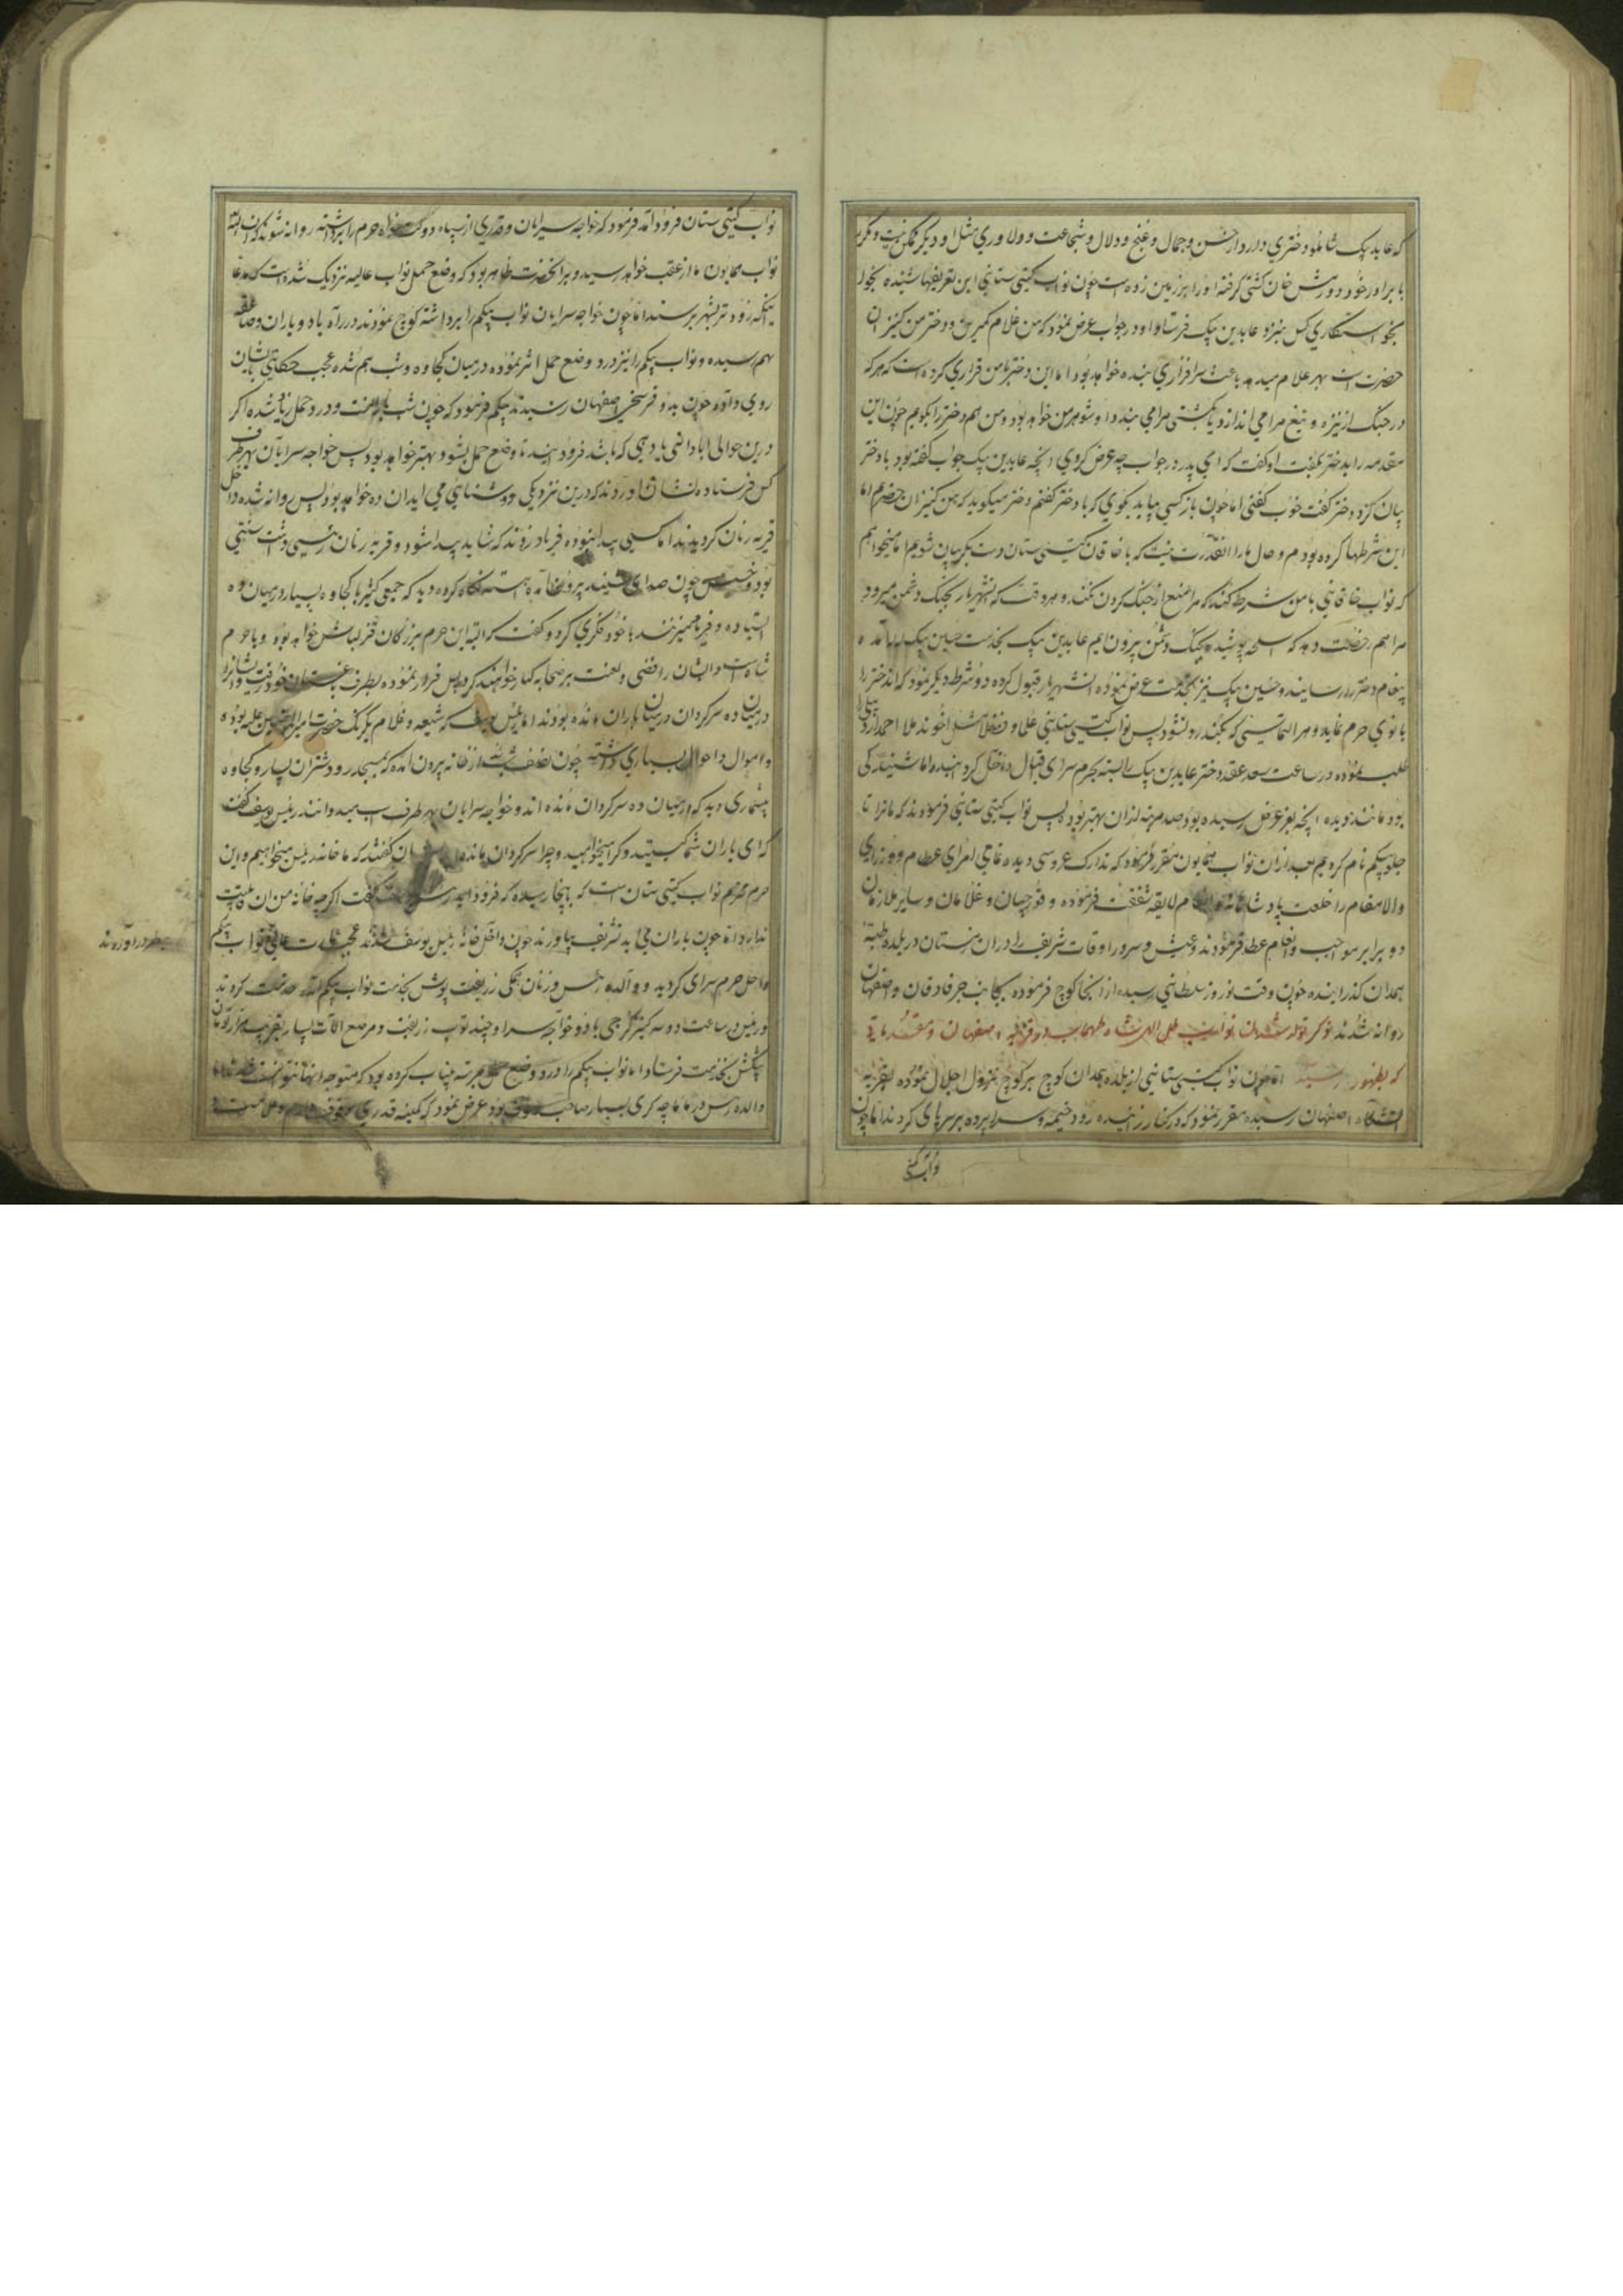 که عابدین بیک شاملو دختری دارد از حسن و جمال و غنج و دلال و شجاعت و دلاوری مثل او دیگر ممکن نیست و مکرر
با برادر خود دورمش خان کشتی گرفته او را بر زمین زده است چون نواب گیتی ستانی این تعریفها شنیده بخود
بخواستکاری کس بنزد عابدین بیک فرستاد او در جواب عرض نمود که من غلام کمین و دختر من کنیز آن
حضرت است بهر غلام میدهد باعث سرافرازی بنده خواهد بود اما این دختر با من قراری کرده است که هر که
در جنک از نیزه و تیغ مرا می اندازد یا بکشتی مرا می بندد او شوهر من خواهد بود و من هم دختر را بکویم چون این
مقدمه را بدختر بگفت او گفت که ای پدر در جواب چه عرض کردی آنچه عابدین بیک جواب گفته بود با دختر
بیان کرد دختر گفت خوب گفتی اما چون باز کسی بیاید بگوی که با دختر گفتم دختر میگوید که من کنیز آن حضرتم اما
این شرطها کرده بودم و حال ما را آنقدرت نیست که با خاقان گیتی ستان دست بگریبان شویم اما میخواهم
که نواب خاقانی با من شرط کند که مرا منع از جنک کردن نکند و هر وقت که آنشهریار بجنک دشمن میرود
مرا هم رخصت دهد که اسلحه پوشیده بجنک دشمن بیرون آیم عابدین بیک بخدمت حسین بیک لله آمده
پیغام دختر را رسانید و حسین بیک نیز بخدمت عرض نموده آنشهریار قبول کرده دو شرط دیکر نمود که آندختر را
بانوی حرم نماید و هر التماسی که بکند رد نشود پس نواب گیتی ستانی علما و فضلا مثل آخوند ملا احمد اردبیلی را
طلب نموده در ساعت سعد عقد دختر عابدین بیک را بسته بحرم سرای اقبال داخل کردند اما شنیدن کی
بود مانند دیدن آنچه بعز عرض رسیده بود صد مرتبه از آن بهتر بود پس نواب گیتی ستانی فرمودند که ما ترا تا
جلو بیکم نام کردیم بعد از آن نواب همایون مقرر فرمود که تدارک عروسی دیده تمامی امرای عظام و وزرای
والامقام را خلعت پادشاهانه و انعام لایقه شفقت فرموده و قورچیان و غلامان و سایر ملازمان
دو برابر مواجب و انعام عطا فرمودند و بعیش و سرور اوقات شریف را در آن زمستان در بلده طیبه
همدان گذرانیده چون وقت نوروز سلطانی رسید از آنجا کوچ فرموده بجانب جرفادقان و اصفهان
روانه شدند ذکر تولد شدن نواب ظل اللهی شاه طهماسب در قریه اصفهان و مقدماتی
که بظهور رسید اما چون نواب گیتی ستانی از بلده همدان کوچ بر کوچ نزول اجلال نموده بقریه
اشکاوند اصفهان رسیده مقرر نمود که در کنار زاینده رود خیمه و سراپرده بر سر پای کردند اما چون
نواب گیتی
نواب گیتی ستان فرود آمد فرمود که خواجه سرایان و قدری از سپاه دولتخواه حرم را برداشته روانه شوند که ان شاء الله
نواب همایون ما از عقب خواهد رسید و بر آنحضرت ظاهر بود که وضع حمل نواب عالیه نزدیک شده است که مدعا
اینکه زودتر بشهر برسند اما چون خواجه سرایان نواب بیکم را برداشته کوچ نمودند در راه باد و باران و صاعقه
بهم رسیده و نواب بیکم را نیز درد وضع حمل اثر نموده در میان کجاوه و شب هم شده عجب حکایتی بایشان
روی داده چون بدو فرسخی اصفهان رسیدند بیکم فرمود که چون شب تار است و درد حمل زیاد شده اکر
درین حوالی آبادانی یا دهی که باشد فرود آیند تا وضع حمل بشود بهتر خواهد بود پس خواجه سرایان بهر طرف
کس فرستاده نشان آوردند که درین نزدیکی روشنایی می آید آن ده خواهد بود پس روانه شده داخل
قریه زنان کردیدند اما کسی پیدا نبوده فریاد زدند که شاید پیدا شود و قریه زنان رئیسی داشت سنی
بود و خسیس چون صدای شنید بیرون آمده آهسته نگاه کرده دید که جمعی کثیر با کجاوه بسیار در میان ده
ایستاده و فریاد میزنند با خود فکری کرد و گفت که البته این حرم بزرگان قزلباش خواهد بود و یا حرم
شاه است و ایشان رافضی و لعنت بر صحابه کبار خواهند کرد پس فرار نموده بطرف خود رفت و ایشانرا
در میان ده سرکردان در میان باران مانده بودند اما رئیس یوسف که شیعه و غلام یکرنک حضرت امیرالمؤمنین علیه بوده
و اموال و احوال بسیاری داشته چون نصف شب از خانه بیرون آمده که بمسجد رود شتران بسیار و کجاوه
بیشماری دید که در میان ده سرکردان مانده اند و خواجه سرایان بهر طرف اسب میدوانند رئیس یوسف گفت
که ای یاران شما کیستید و کرا میخواهید و چرا سرکردان مانده اید ایشان گفتند که ما خانه رئیس میخواهیم و این
حرم محترم نواب گیتی ستان است که باینجا رسیده که فرود آید رئیس یوسف گفت اکرچه خانه من آن لیاقت
ندارد اما چون باران می آید تشریف بیاورند چون داخل خانه رئیس یوسف شدند عجب عمارت عالی نواب بیکم
بنظر در آوردند
داخل حرم سرای کردید و والده رئیس و زنان همکی زربفت پوش بخدمت نواب بیکم آمده خدمت کردند
و رئیس در ساعت دو سه کنیز کرجی با دو خواجه سرا و چند توپ زربفت و مرصع آلات بسیار بقریب هزار تومان
پیشکش بخدمت فرستاد اما نواب بیکم را درد وضع حمل بمرتبه بیتاب کرده بود که متوجه اینها نتوانست شد اما
والده رئیس در ماماچه کری بسیار صاحب وقوف بود عرض نمود که کمینه قدری وقوف دارم